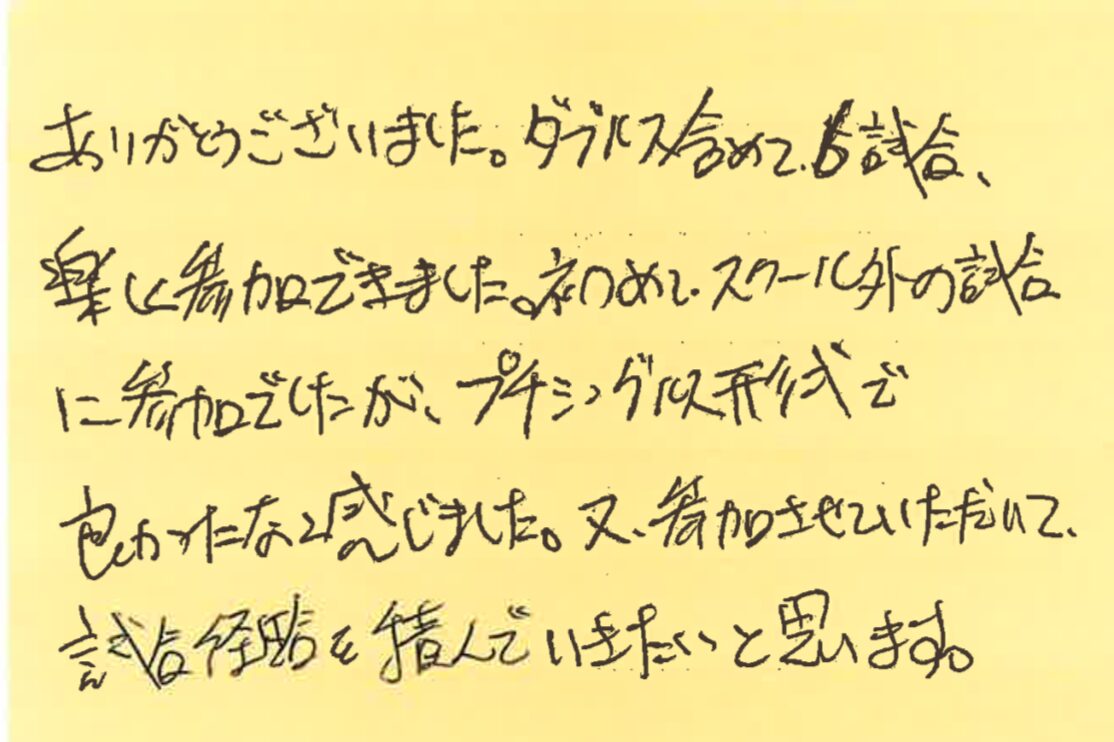 ありがとうございました。ダブルス含めて、6試合、
楽しく参加できました。初めて、スクール外の試合
に参加でしたが、プチシングルス形式で
良かったなと感じました。又、参加させていただいて、
試合経験を積んでいきたいと思います。